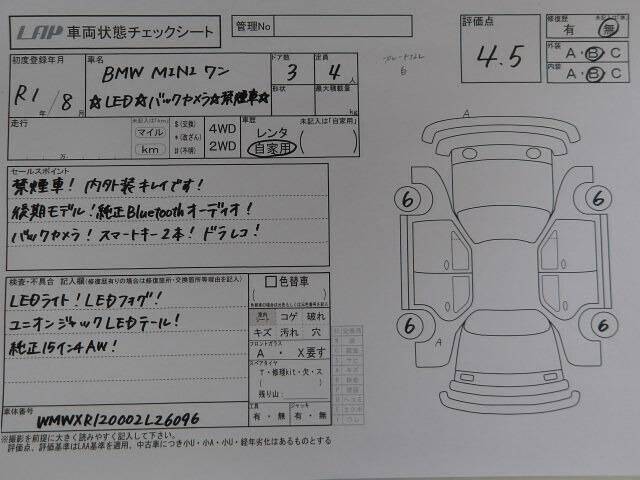 LAP 車両状態チェックシート
管理No
評価点
4.5
修復歴 未記入は「無」
有 無
外装 A・B C
内装 A・B C
初度登録年月
R1年 / 8月
車名
BMW MINI ワン
☆LED☆バックカメラ☆禁煙車☆
ドア数
3
定員
4人
形状
最大積載量
kg
白
走行
万
未記入は「km」
マイル
km
$ (交換)
* (改ざん)
# (不明)
4WD
2WD
車歴 未記入は「自家用」
レンタ
自家用
セールスポイント
禁煙車! 内外装キレイです!
後期モデル! 純正Bluetoothオーディオ!
バックカメラ! スマートキー2本! ドラレコ!
検査・不具合 記入欄(修復歴有りの場合は修復箇所・交換箇所等理由を記入)
LEDライト! LEDフォグ!
ユニオンジャックLEDテール!
純正15インチAW!
色替車
車内シート
コゲ 破れ
キズ 汚れ 穴
フロントガラス
A ・ X要す
スペアタイヤ
T・修理kit・欠・ス
残り山:
工具
有・無
ジャッキ
有・無
車体番号
WMWXR120002L26096
A
6
6
6
6
A
※撮影を前提に大きく読みやすく記入して下さい。
評価点、評価基準はLAA基準を適用、中古車につき小U・小A・小U・経年劣化はあるものとする